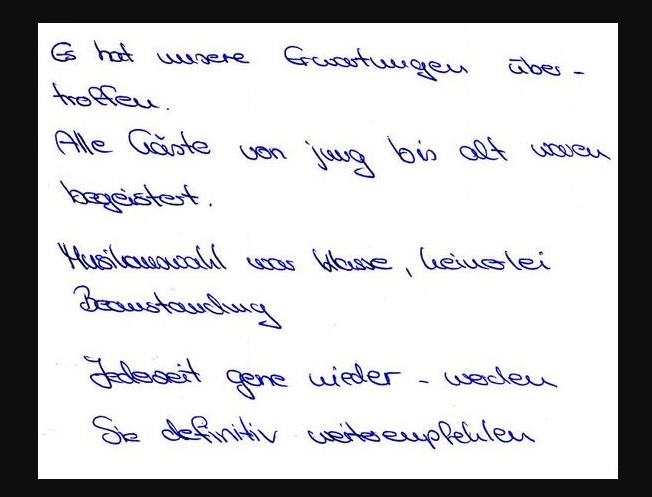 Es hat unsere Erwartungen über-
troffen.
Alle Gäste von jung bis alt waren
begeistert.
Musikauswahl war klasse, keinerlei
Beanstandung
Jederzeit gerne wieder - werden
Sie definitiv weiterempfehlen